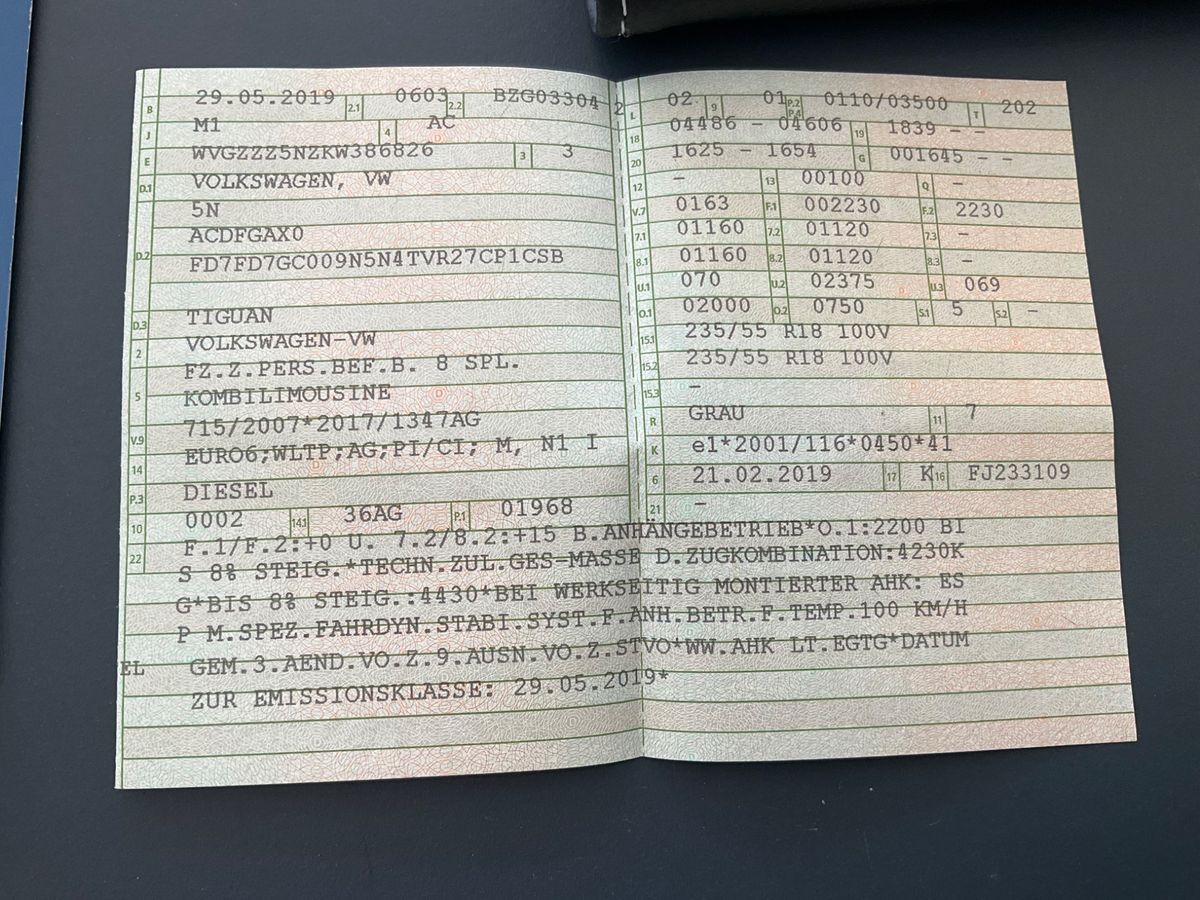 B 29.05.2019 2.1 0603 2.2 BZG03304 2
J M1 4 AC
E WVGZZZ5NZKW386826 3 3
D.1 VOLKSWAGEN, VW
5N
D.2 ACDFGAX0
FD7FD7GC009N5N4TVR27CP1CSB
D.3 TIGUAN
2 VOLKSWAGEN-VW
5 FZ.Z.PERS.BEF.B. 8 SPL.
KOMBILIMOUSINE
V.9 715/2007*2017/1347AG
14 EURO6;WLTP;AG;PI/CI; M, N1 I
P.3 DIESEL
10 0002 14.1 36AG P.1 01968
L 02 9 01 P.2 P.4 0110/03500 T 202
18 04486 - 04606 19 1839 - -
20 1625 - 1654 G 001645 - -
12 - 13 00100 Q -
V.7 0163 F.1 002230 F.2 2230
7.1 01160 7.2 01120 7.3 -
8.1 01160 8.2 01120 8.3 -
U.1 070 U.2 02375 U.3 069
O.1 02000 O.2 0750 S.1 5 S.2 -
15.1 235/55 R18 100V
15.2 235/55 R18 100V
15.3 -
R GRAU 11 7
K e1*2001/116*0450*41
6 21.02.2019 17 K 16 FJ233109
21 -
22 F.1/F.2:+0 U. 7.2/8.2:+15 B.ANHÄNGEBETRIEB*O.1:2200 BI
S 8% STEIG.*TECHN.ZUL.GES-MASSE D.ZUGKOMBINATION:4230K
G*BIS 8% STEIG.:4430*BEI WERKSEITIG MONTIERTER AHK: ES
P M.SPEZ.FAHRDYN.STABI.SYST.F.ANH.BETR.F.TEMP.100 KM/H
EL GEM.3.AEND.VO.Z.9.AUSN.VO.Z.STVO*WW.AHK LT.EGTG*DATUM
ZUR EMISSIONSKLASSE: 29.05.2019*